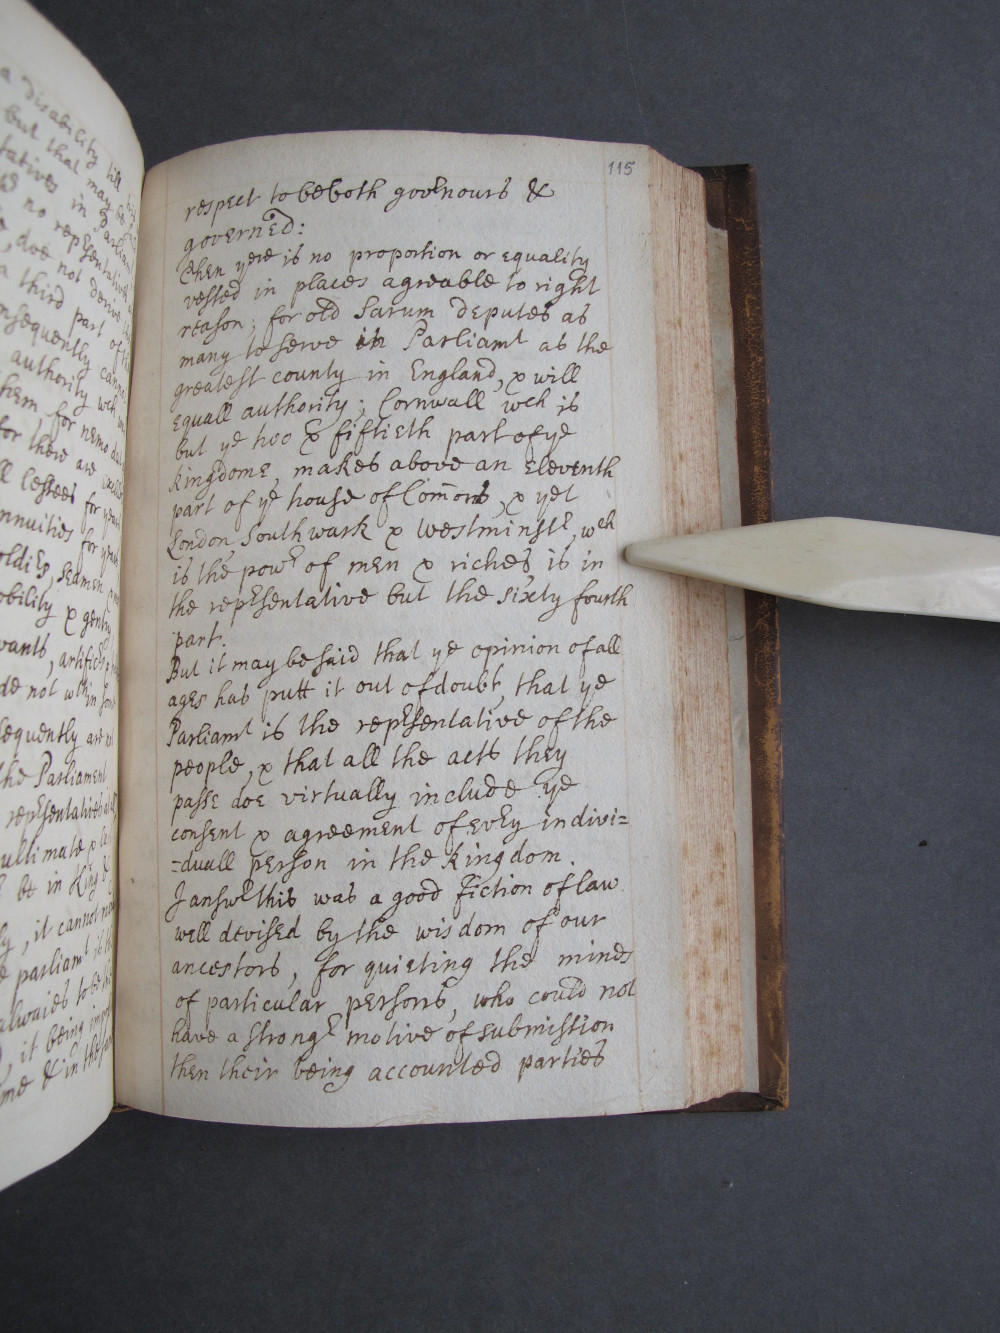 a disability till
but that may be
tatives in Parliam
no representatives
, doe not derive
a third part of the
nsequently cannot
authority wch
them for nemo dat
for there are
ll lessees for years
nnuities for years
oldies, seamen
obility & gentry
vants, artificrs
de not wthin
sequently are not
the Parliament
representatives
ultimate &
be in King &
ly, it cannot
e parliamt
alwaies to be
, it being
me & in the
115
respect to be both govrnours &
governed:
Then yere is no proportion or equality
vested in places agreable to right
reason; for old Sarum deputes as
many to serve in Parliamt as the
greatest county in England, & will
equall authority; Cornwall wch is
but ye two & fiftieth part of ye
kingdome, makes above an eleventh
part of ye house of Com̄ons, & yet
London Southwark & Westminstr, wch
is the powr of men & riches is in
the repʳsentative but the sixty fourth
part.
But it may be said that ye opinion of all
ages has putt it out of doubt, that ye
Parliamt is the repʳsentative of the
people, & that all the acts they
passe doe virtually include ye
consent & agreement of evʳy indivi=
=duall person in the kingdom.
I answr this was a good fiction of law
well devised by the wisdom of our
ancestors, for quieting the minds
of particular persons, who could not
have a strongr motive of submission
then their being accounted parties